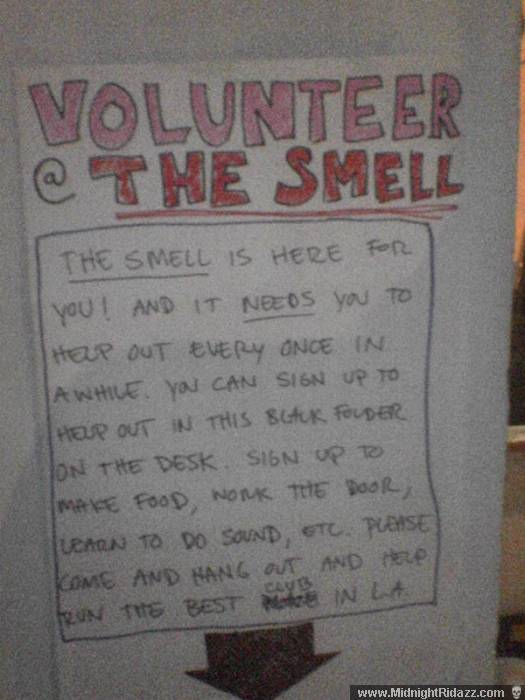 VOLUNTEER
@ THE SMELL
THE SMELL IS HERE FOR
YOU! AND IT NEEDS YOU TO
HELP OUT EVERY ONCE IN
AWHILE. YOU CAN SIGN UP TO
HELP OUT IN THIS BLACK FOLDER
ON THE DESK. SIGN UP TO
MAKE FOOD, WORK THE DOOR,
LEARN TO DO SOUND, ETC. PLEASE
COME AND HANG OUT AND HELP
RUN THE BEST CLUB IN L.A.
www.MidnightRidazz.com